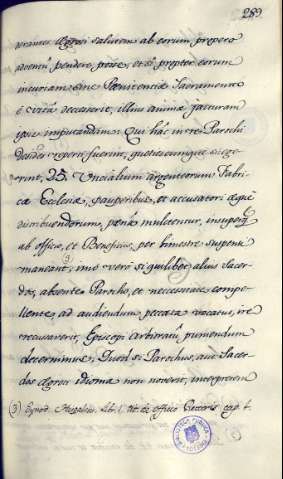 289
verantes Ægroti salutem ab eorum propero
adventu pendere posse, et si propter eorum
incuriam sine Pœnitentiæ Sacramento
è vita decesserit, illius animæ jacturam
ipsis imputandam: Qui hac in re Parochi
desides reperti fuerint, quotiescunque
25. Unciarum argentearum Fabri-
cæ Ecclesiæ, pauperibus, et accusatori æquè
distribuendorum, pena mulctentur, insuperq
ab officio, et Beneficio, per bimestre suspensi
maneant; (3) imo verò si quilibet alius Sacer-
dos, absente Parocho, et necessitate compe-
llente, ad audiendum peccata vocatus, ire
recusaverit, Episcopi arbitratu puniendum
decernimus; Quod si Parochus, aut Sacer-
dos ægroti idioma non noverit, interpretem
(3) Synod. lib. 1. tit. de officio Rectoris cap. 1.